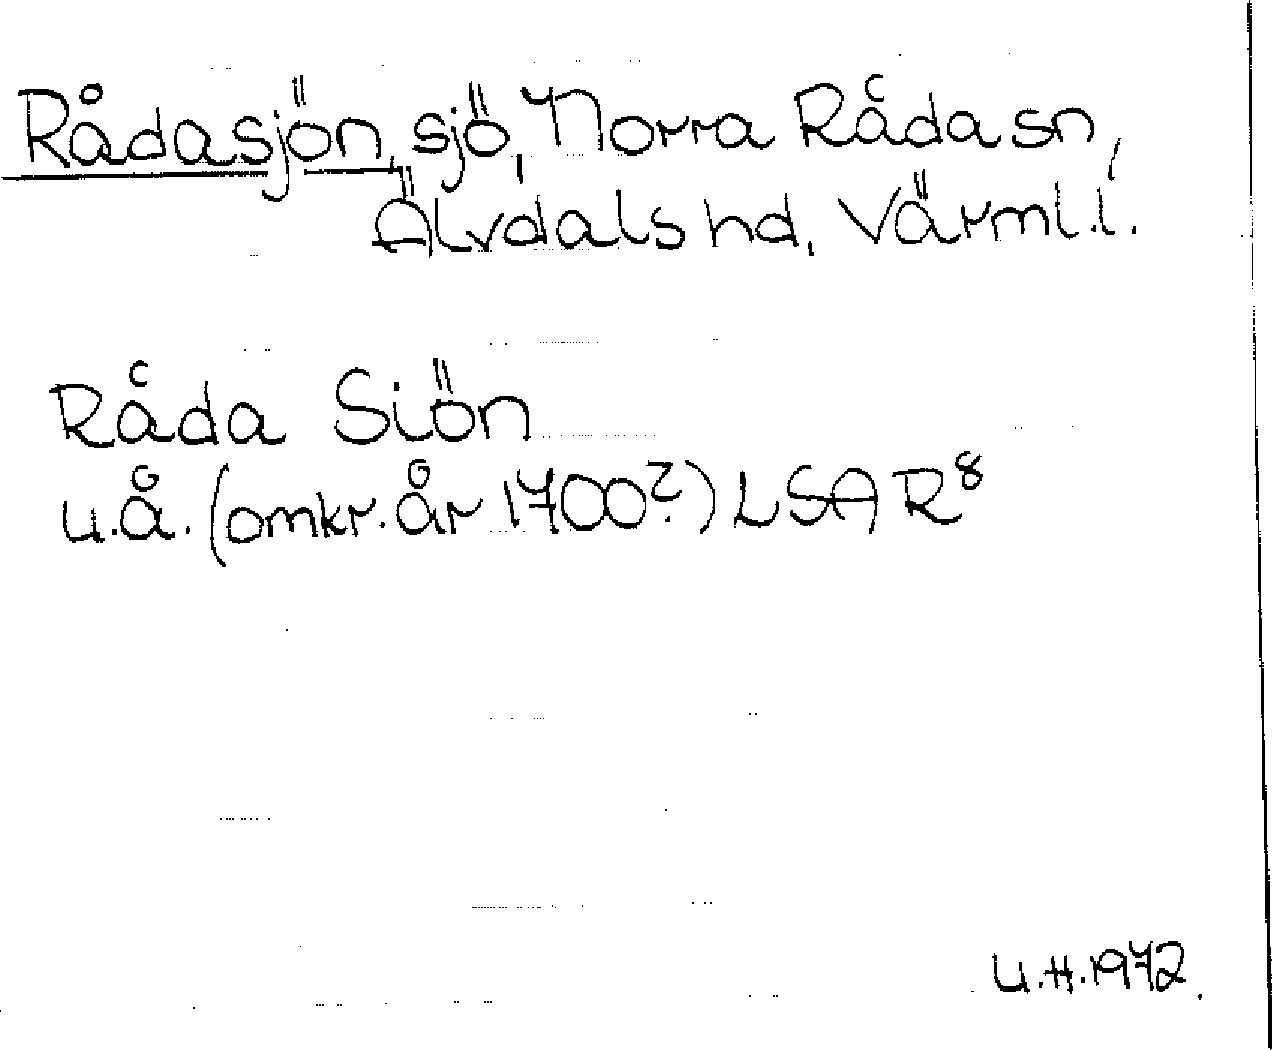 Rådasjön, sjö, Norra Råda sn,
Älvdals hd, Värml.l.
Råda Siön
u.å. (omkr. år 1700?) LSA R⁸
U.H. 1972.